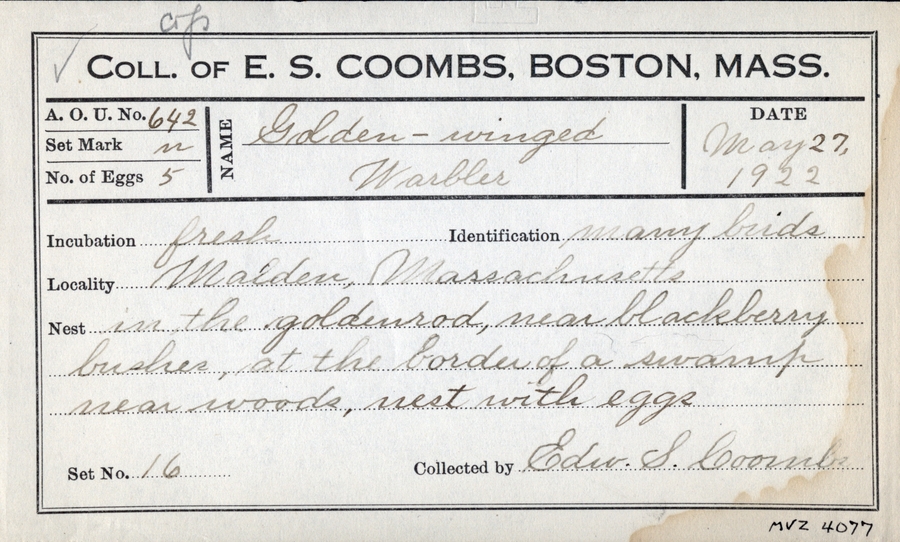 COLL. OF E. S. COOMBS, BOSTON, MASS.
A. O. U. No. 642
Set Mark n
No. of Eggs 5
NAME Golden-winged
Warbler
DATE
May 27,
1922
Incubation fresh Identification many birds
Locality Malden, Massachusetts
Nest in the goldenrod, near blackberry
bushes, at the border of a swamp
near woods, nest with eggs
Set No. 16 Collected by Edw. S. Coombs
MVZ 4077